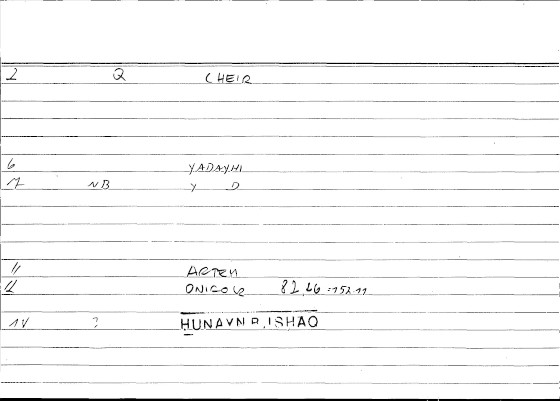 2 Q CHEIR
6 YADAYHI
7 NB Y D
11 ARTEM
12 82,46 :152.11
14 ? HUNAYN B. ISHAQ